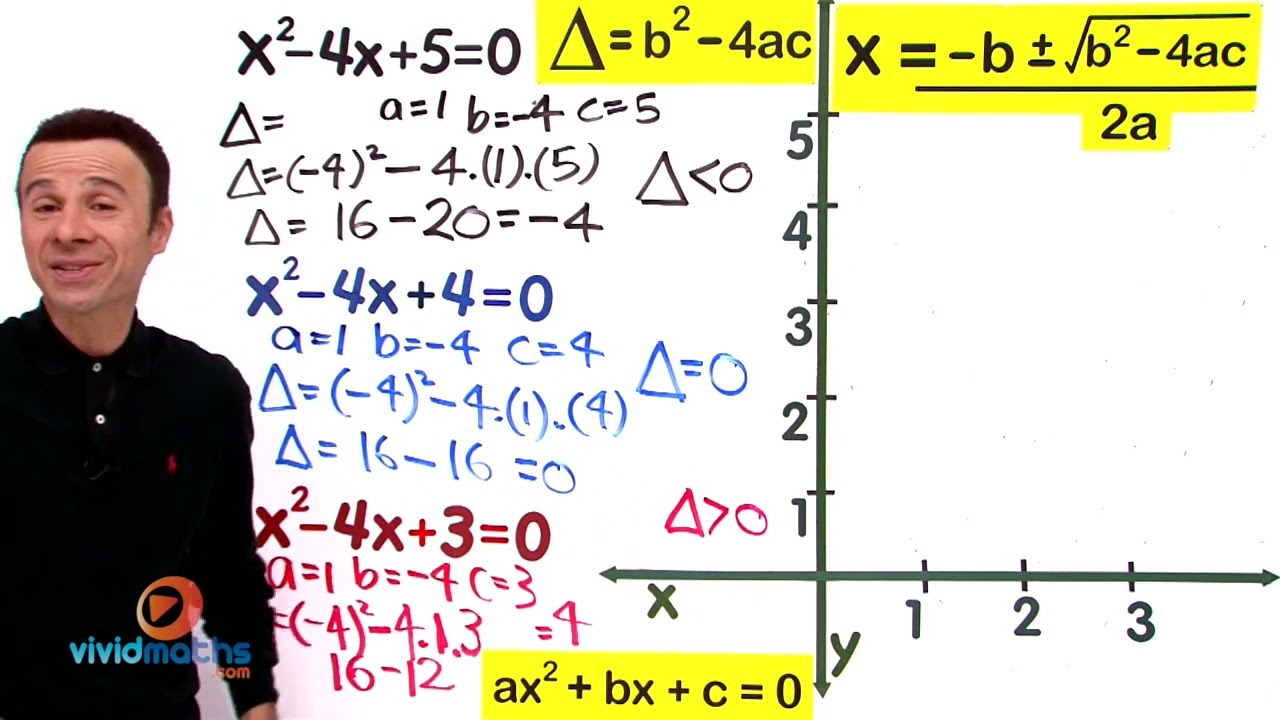 x²-4x+5=0
Δ=b²-4ac
x = -b ± √b²-4ac
2a
a=1 b=-4 c=5
Δ=
Δ=(-4)²-4.(1).(5)
Δ<0
Δ= 16-20=-4
x²-4x+4=0
a=1 b=-4 c=4
Δ=0
Δ=(-4)²-4.(1).(4)
Δ= 16-16 =0
x²-4x+3=0
Δ>0
a=1 b=-4 c=3
=(-4)²-4.1.3 =4
16-12
ax²+bx+c=0
5
4
3
2
1
1 2 3
x
y
vividmaths
.com